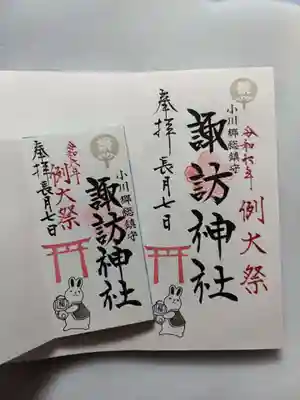 例大祭
小川郷総鎮守
諏訪神社
奉拝 長月七日
例大祭
小川郷総鎮守
諏訪神社
奉拝 長月七日